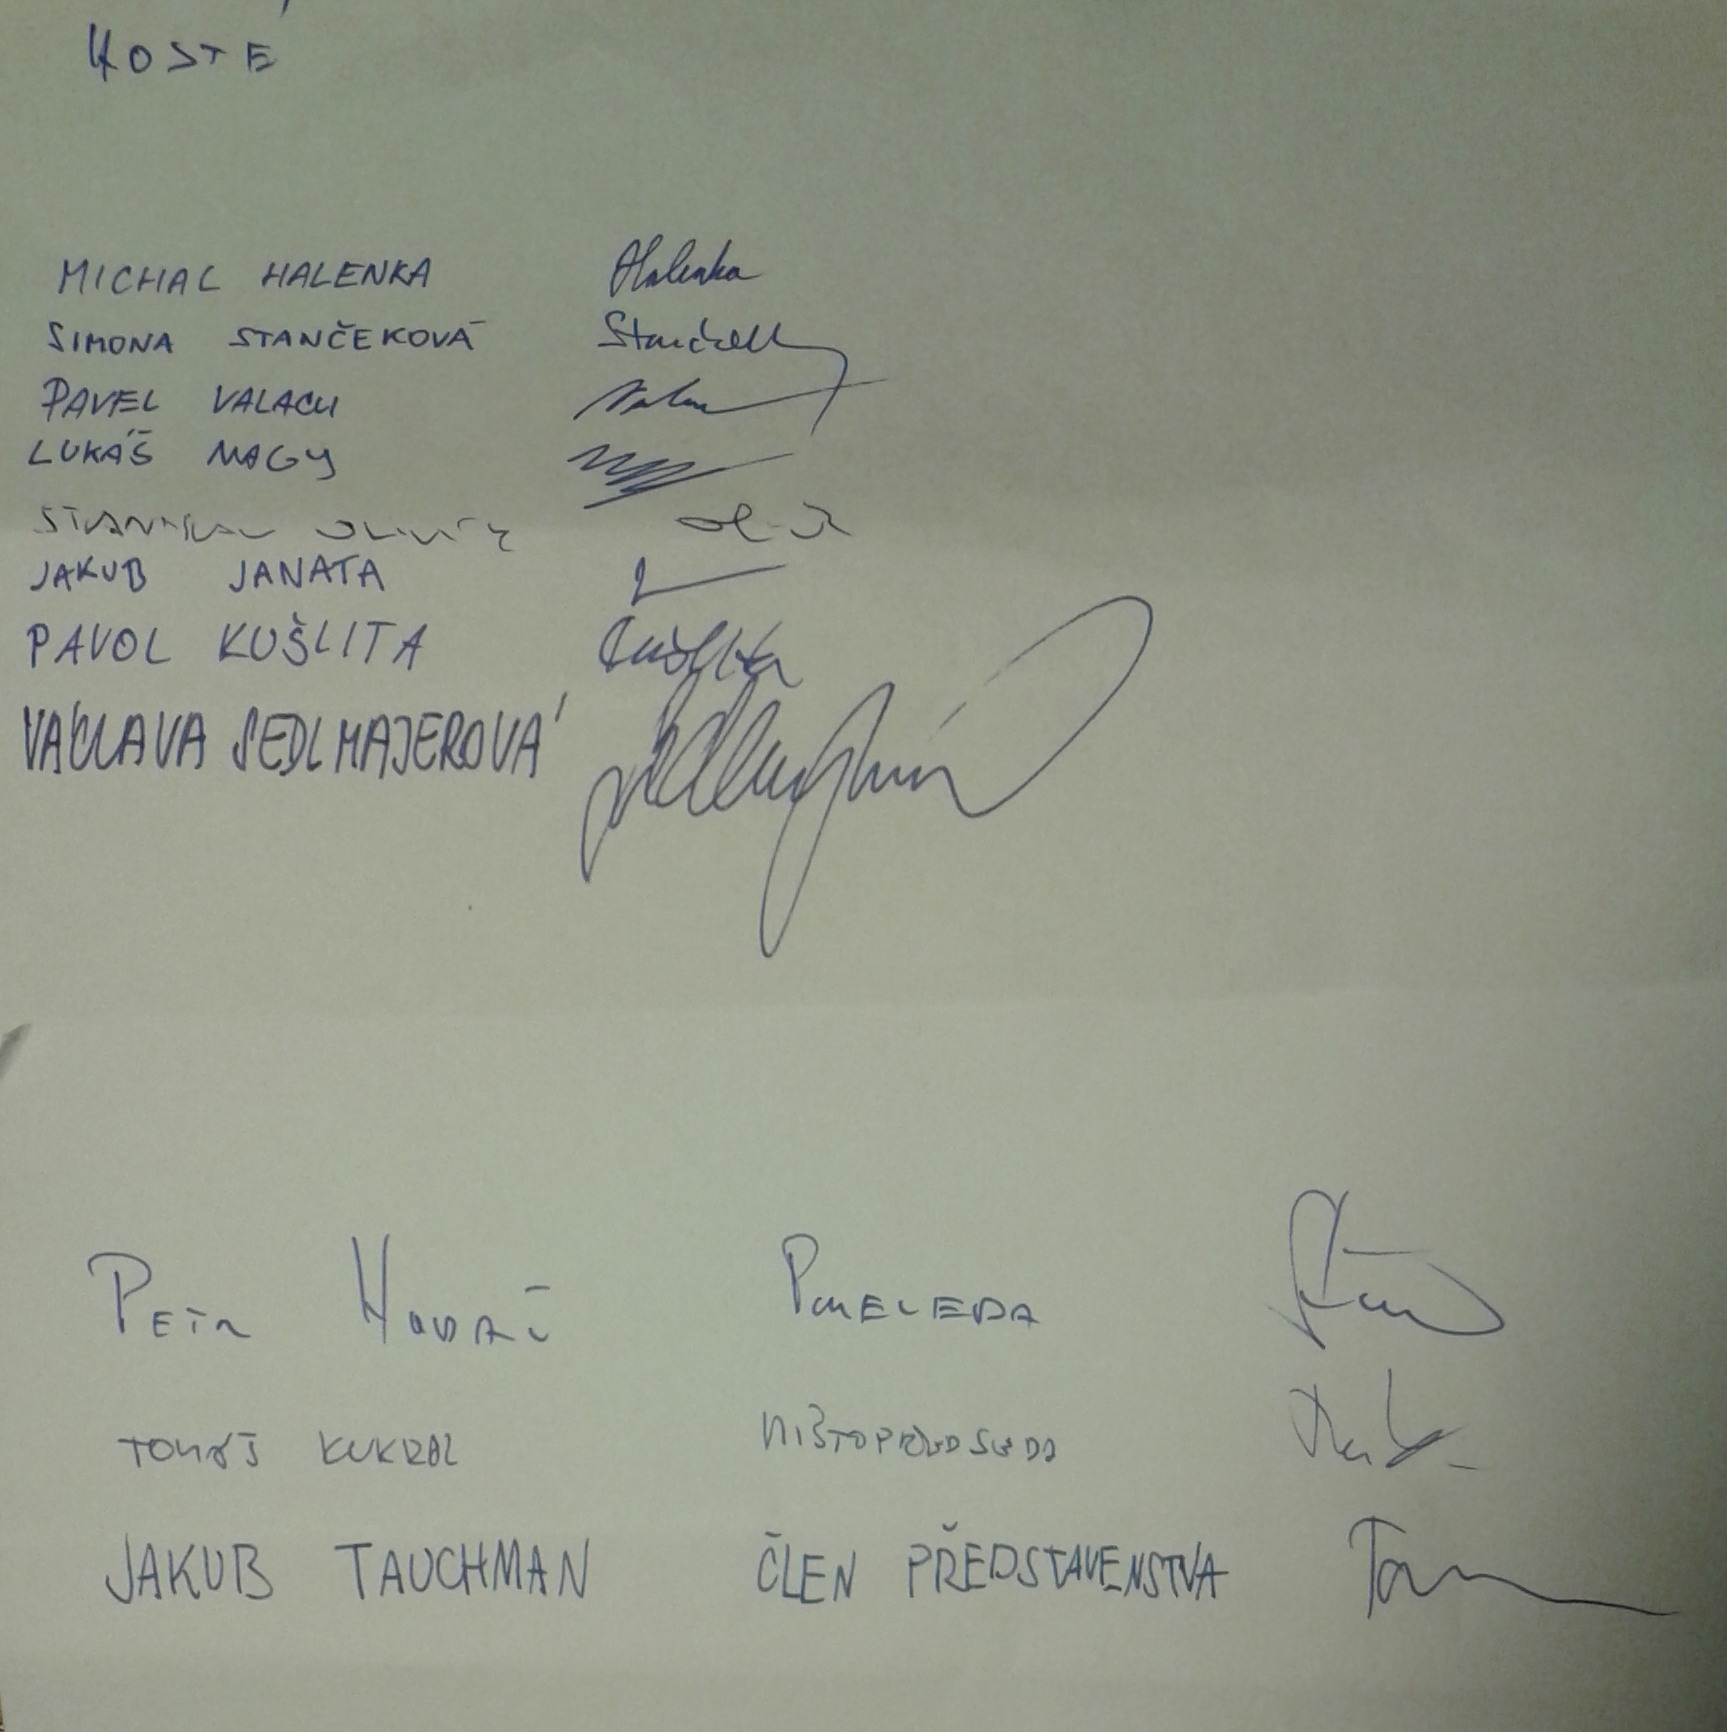 HOSTÉ
MICHAL HALENKA Halenka
SIMONA STANČEKOVÁ
PAVEL VALACH
LUKÁŠ NAGY
STANISLAV
JAKUB JANATA
PAVOL KUŠLITA Kušlita
VÁCLAVA SEDLMAJEROVÁ
PETR
TOMÁŠ KUKRAL MÍSTOPŘEDSEDA
JAKUB TAUCHMAN ČLEN PŘEDSTAVENSTVA